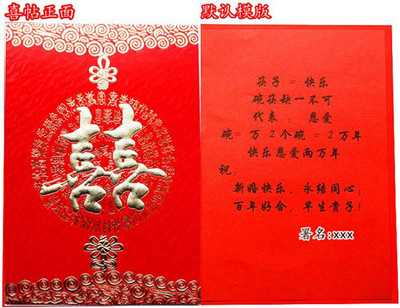 喜帖正面
囍
默认模版
筷子 = 快乐
碗筷缺一不可
代表 : 恩爱
碗= 万 2个碗 = 2万年
快乐恩爱两万年
祝:
新婚快乐, 永结同心;
百年好合, 早生贵子!
署名:xxx